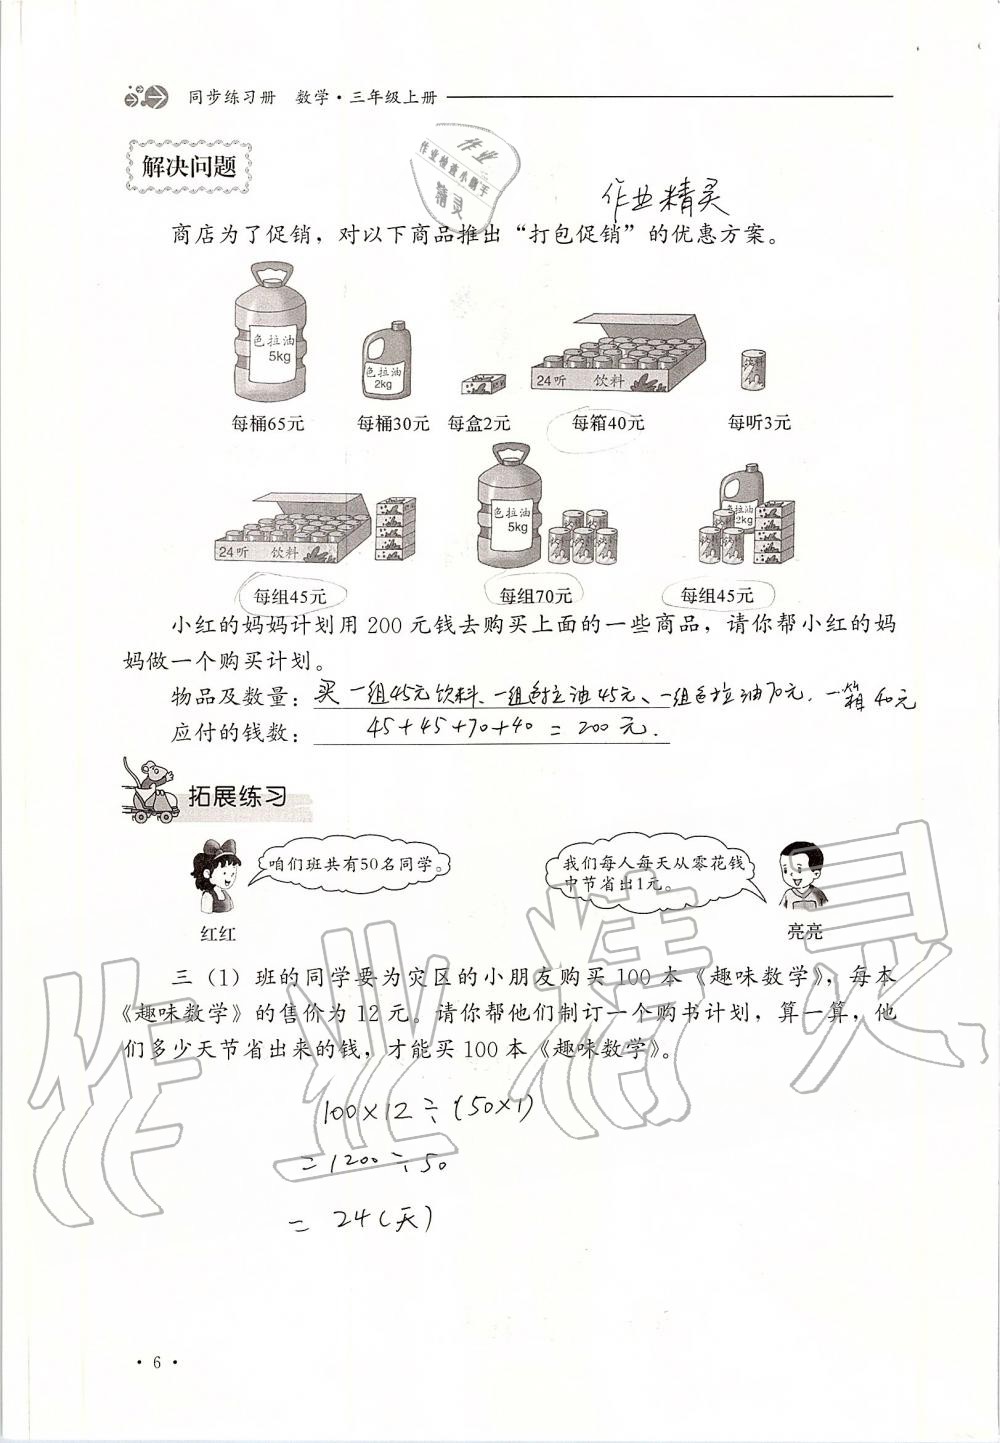 同步练习册 数学·三年级上册
解决问题
作业
作业检查小助手
精灵
作业精灵
商店为了促销，对以下商品推出“打包促销”的优惠方案。
色拉油
5kg
色拉油
2kg
24听 饮料
饮料
每桶65元 每桶30元 每盒2元 每箱40元 每听3元
24听 饮料
色拉油
5kg
饮料
色拉油
2kg
饮料
每组45元 每组70元 每组45元
小红的妈妈计划用 200 元钱去购买上面的一些商品，请你帮小红的妈
妈做一个购买计划。
物品及数量：买一组45元饮料、一组色拉油45元、一组色拉油70元，一箱40元
应付的钱数：45+45+70+40=200元.
拓展练习
咱们班共有50名同学。
我们每人每天从零花钱
中节省出1元。
红红
亮亮
三（1）班的同学要为灾区的小朋友购买 100 本《趣味数学》，每本
《趣味数学》的售价为 12 元。请你帮他们制订一个购书计划，算一算，他
们多少天节省出来的钱，才能买 100 本《趣味数学》。
100×12÷(50×1)
=1200÷50
=24(天)
作业精灵
·6·